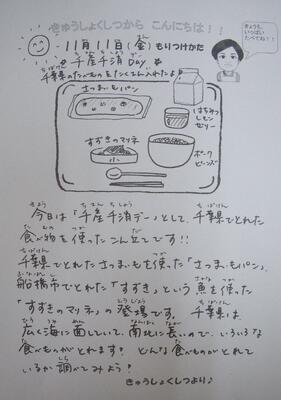 きゅうしょくしつから こんにちは!!
きょうも、
いっぱい
たべてね!!
11月11日(金)もりつけかた
千産千消Day
千葉県のたべものをたくさん入れたよ
さつまいもパン
はちみつ
レモン
ゼリー
すずきのマリネ
小
ポーク
ビーンズ
今日は「千産千消デー」として、千葉県でとれた
食べ物を使ったこん立てです!!
千葉県でとれたさつまいもを使った「さつまいもパン」、
船橋市でとれた「すずき」という魚を使った
「すずきのマリネ」の登場です。千葉県は、
広く海に面していて、南北に長いので、いろいろな
食べものがとれます! どんな食べものがとれて
いるか調べてみよう!
きゅうしょくしつより♪